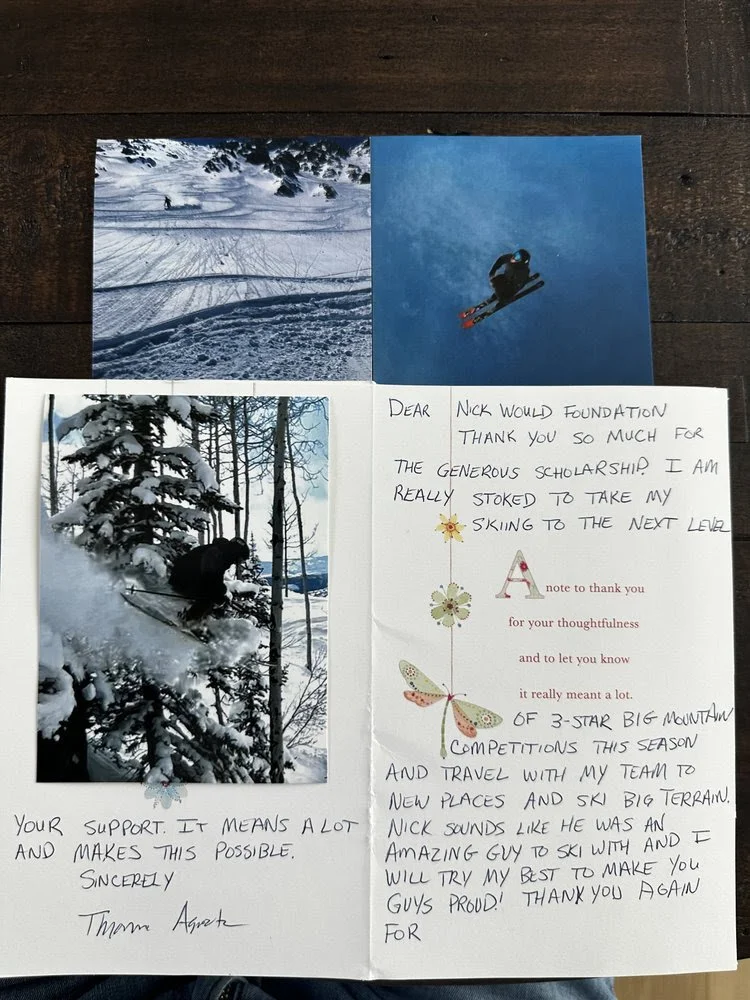 DEAR NICK WOULD FOUNDATION
THANK YOU SO MUCH FOR
THE GENEROUS SCHOLARSHIP. I AM
REALLY STOKED TO TAKE MY
SKIING TO THE NEXT LEVEL
A note to thank you
for your thoughtfulness
and to let you know
it really meant a lot.
OF 3-STAR BIG MOUNTAIN
COMPETITIONS THIS SEASON
AND TRAVEL WITH MY TEAM TO
NEW PLACES AND SKI BIG TERRAIN.
NICK SOUNDS LIKE HE WAS AN
AMAZING GUY TO SKI WITH AND I
WILL TRY MY BEST TO MAKE YOU
GUYS PROUD! THANK YOU AGAIN
FOR
YOUR SUPPORT. IT MEANS A LOT
AND MAKES THIS POSSIBLE.
SINCERELY